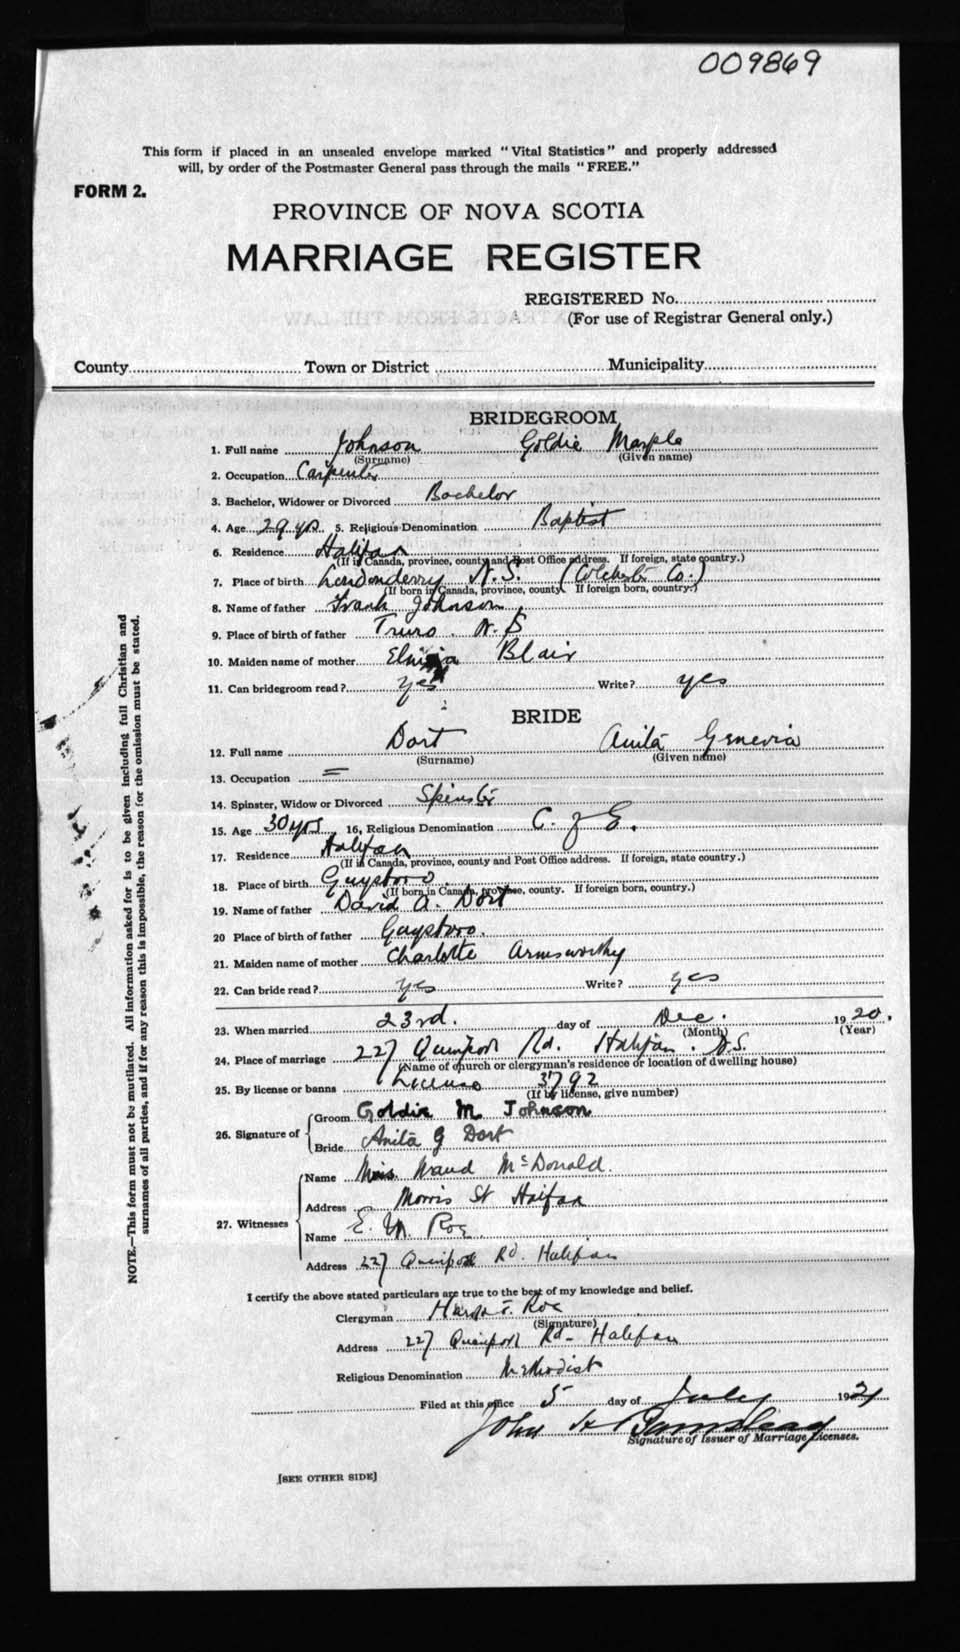 009869
This form if placed in an unsealed envelope marked "Vital Statistics" and properly addressed
will, by order of the Postmaster General pass through the mails "FREE."
FORM 2.
PROVINCE OF NOVA SCOTIA
MARRIAGE REGISTER
REGISTERED No.
(For use of Registrar General only.)
County Town or District Municipality
BRIDEGROOM
1. Full name Johnson Goldie Marple
(Surname) (Given name)
2. Occupation Carpenter
3. Bachelor, Widower or Divorced Bachelor
4. Age 29 yrs 5. Religious Denomination Baptist
6. Residence Halifax
(If in Canada, province, county and Post Office address. If foreign, state country.)
7. Place of birth Londonderry N.S. (Colchester Co.)
(If born in Canada, province, county. If foreign born, country.)
8. Name of father Frank Johnson
9. Place of birth of father Truro. N.S
10. Maiden name of mother Blair
11. Can bridegroom read? yes Write? yes
BRIDE
12. Full name Dort Anita Genevia
(Surname) (Given name)
13. Occupation =
14. Spinster, Widow or Divorced Spinster
15. Age 30 yrs 16, Religious Denomination C. of E.
17. Residence Halifax
(If in Canada, province, county and Post Office address. If foreign, state country.)
18. Place of birth Guysboro
(If born in Canada, province, county. If foreign born, country.)
19. Name of father David A. Dort
20 Place of birth of father Guysboro.
21. Maiden name of mother Charlotte Armsworthy
22. Can bride read? yes Write? yes
23. When married 23rd. day of Dec. 1920.
(Month) (Year)
24. Place of marriage 227 Quinpool Rd. Halifax. N.S.
(Name of church or clergyman's residence or location of dwelling house)
25. By license or banns License 3792
(If by license, give number)
26. Signature of
Groom Goldie M Johnson
Bride Anita G Dort
27. Witnesses
Name Maud McDonald.
Address Morris St Halifax
Name E. M. Roe
Address 227 Quinpool Rd. Halifax
I certify the above stated particulars are true to the best of my knowledge and belief.
Clergyman Roe
(Signature)
Address 227 Quinpool Rd- Halifax
Religious Denomination Methodist
Filed at this office 5 day of July 1921
John
Signature of Issuer of Marriage Licenses.
[SEE OTHER SIDE]
NOTE.—This form must not be mutilated. All information asked for is to be given including full Christian and
surnames of all parties, and if for any reason this is impossible, the reason for the omission must be stated.